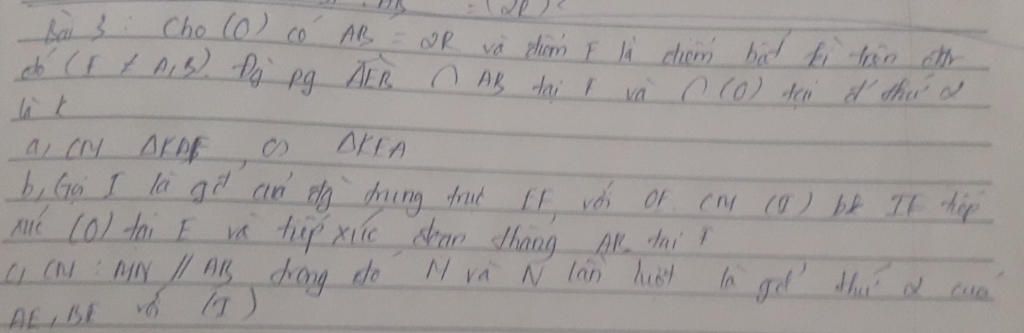 Bài 3 : Cho (O) có AB = 2R và điểm E là điểm bất kì trên đtr
đó (E ≠ A,B). Đg pg AEB ∩ AB tại F và ∩ (O) tại đ' thứ 2
là K
a, CM ΔKAF ∽ ΔKEA
b, Gọi I là gđ' của đg trung trực EF với OE CM (I) bk IE tiếp
xúc (O) tại E và tiếp xúc đoạn thẳng AB tại F
c, CM : MN // AB trong đó M và N lần lượt là gđ' thứ 2 của
AE, BE với (I)